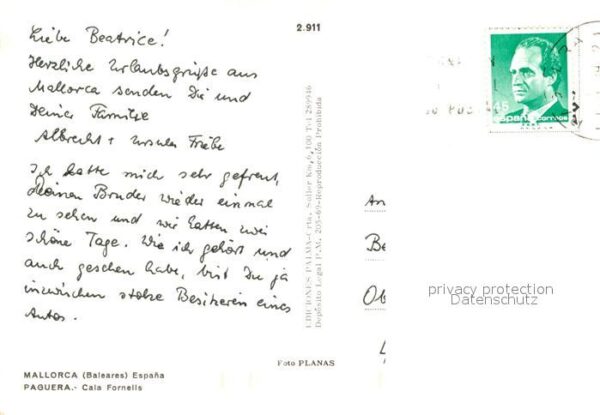 2.911
Liebe Beatrice!
Herzliche Urlaubsgrüße aus
Mallorca senden Dir und
Deiner Familie
Albrecht + Ursula Friebe
Ich hatte mich sehr gefreut,
Deinen Bruder wieder einmal
zu sehen und wir hatten zwei
schöne Tage. Wie ich gehört und
auch gesehen habe, bist Du ja
inzwischen stolze Besitzerin eines
Autos.
MALLORCA (Baleares) España
PAGUERA.- Cala Fornells
Foto PLANAS
EDICIONES PALMA-Crta. Soller Km, 6,100 T-1 289946
Depósito Legal P.M. 205-69-Reproducción Prohibida
45
españa correos
An
Be
Ob
privacy protection
Datenschutz